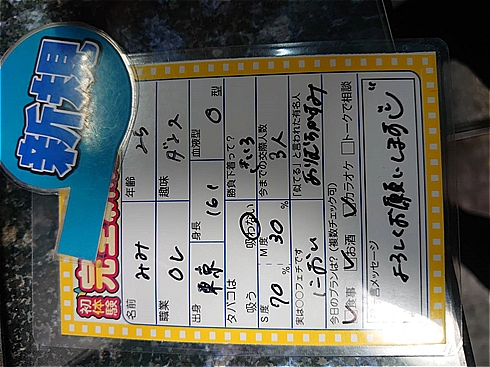 新規
初体験 完全
名前 みみ 年齢 25
職業 OL 趣味 ダンス
出身 東京 身長 161 血液型 O 型
タバコは 吸う 吸わない 勝負下着って？ むらさき
S度 70 % M度 30 % 今までの交際人数 3人
実は○○フェチです におい 「似てる」と言われた有名人
今日のプランは？（複数チェック可）
食事 お酒 カラオケ トークで相談
メッセージ
よろしくお願いします